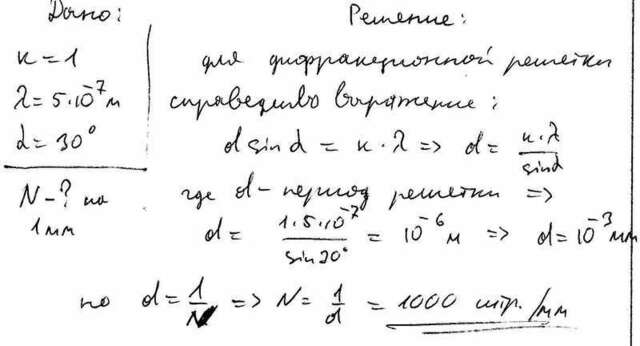 Дано:
к = 1
λ = 5·10⁻⁷ м
α = 30°
N - ? на
1 мм
Решение:
для дифракционной решетки
справедливо выражение:
d sinα = к·λ => d = к·λ / sinα
где d - период решетки =>
d = 1·5·10⁻⁷ / sin30° = 10⁻⁶ м => d = 10⁻³ мм
но d = 1/N => N = 1/d = 1000 штр./мм